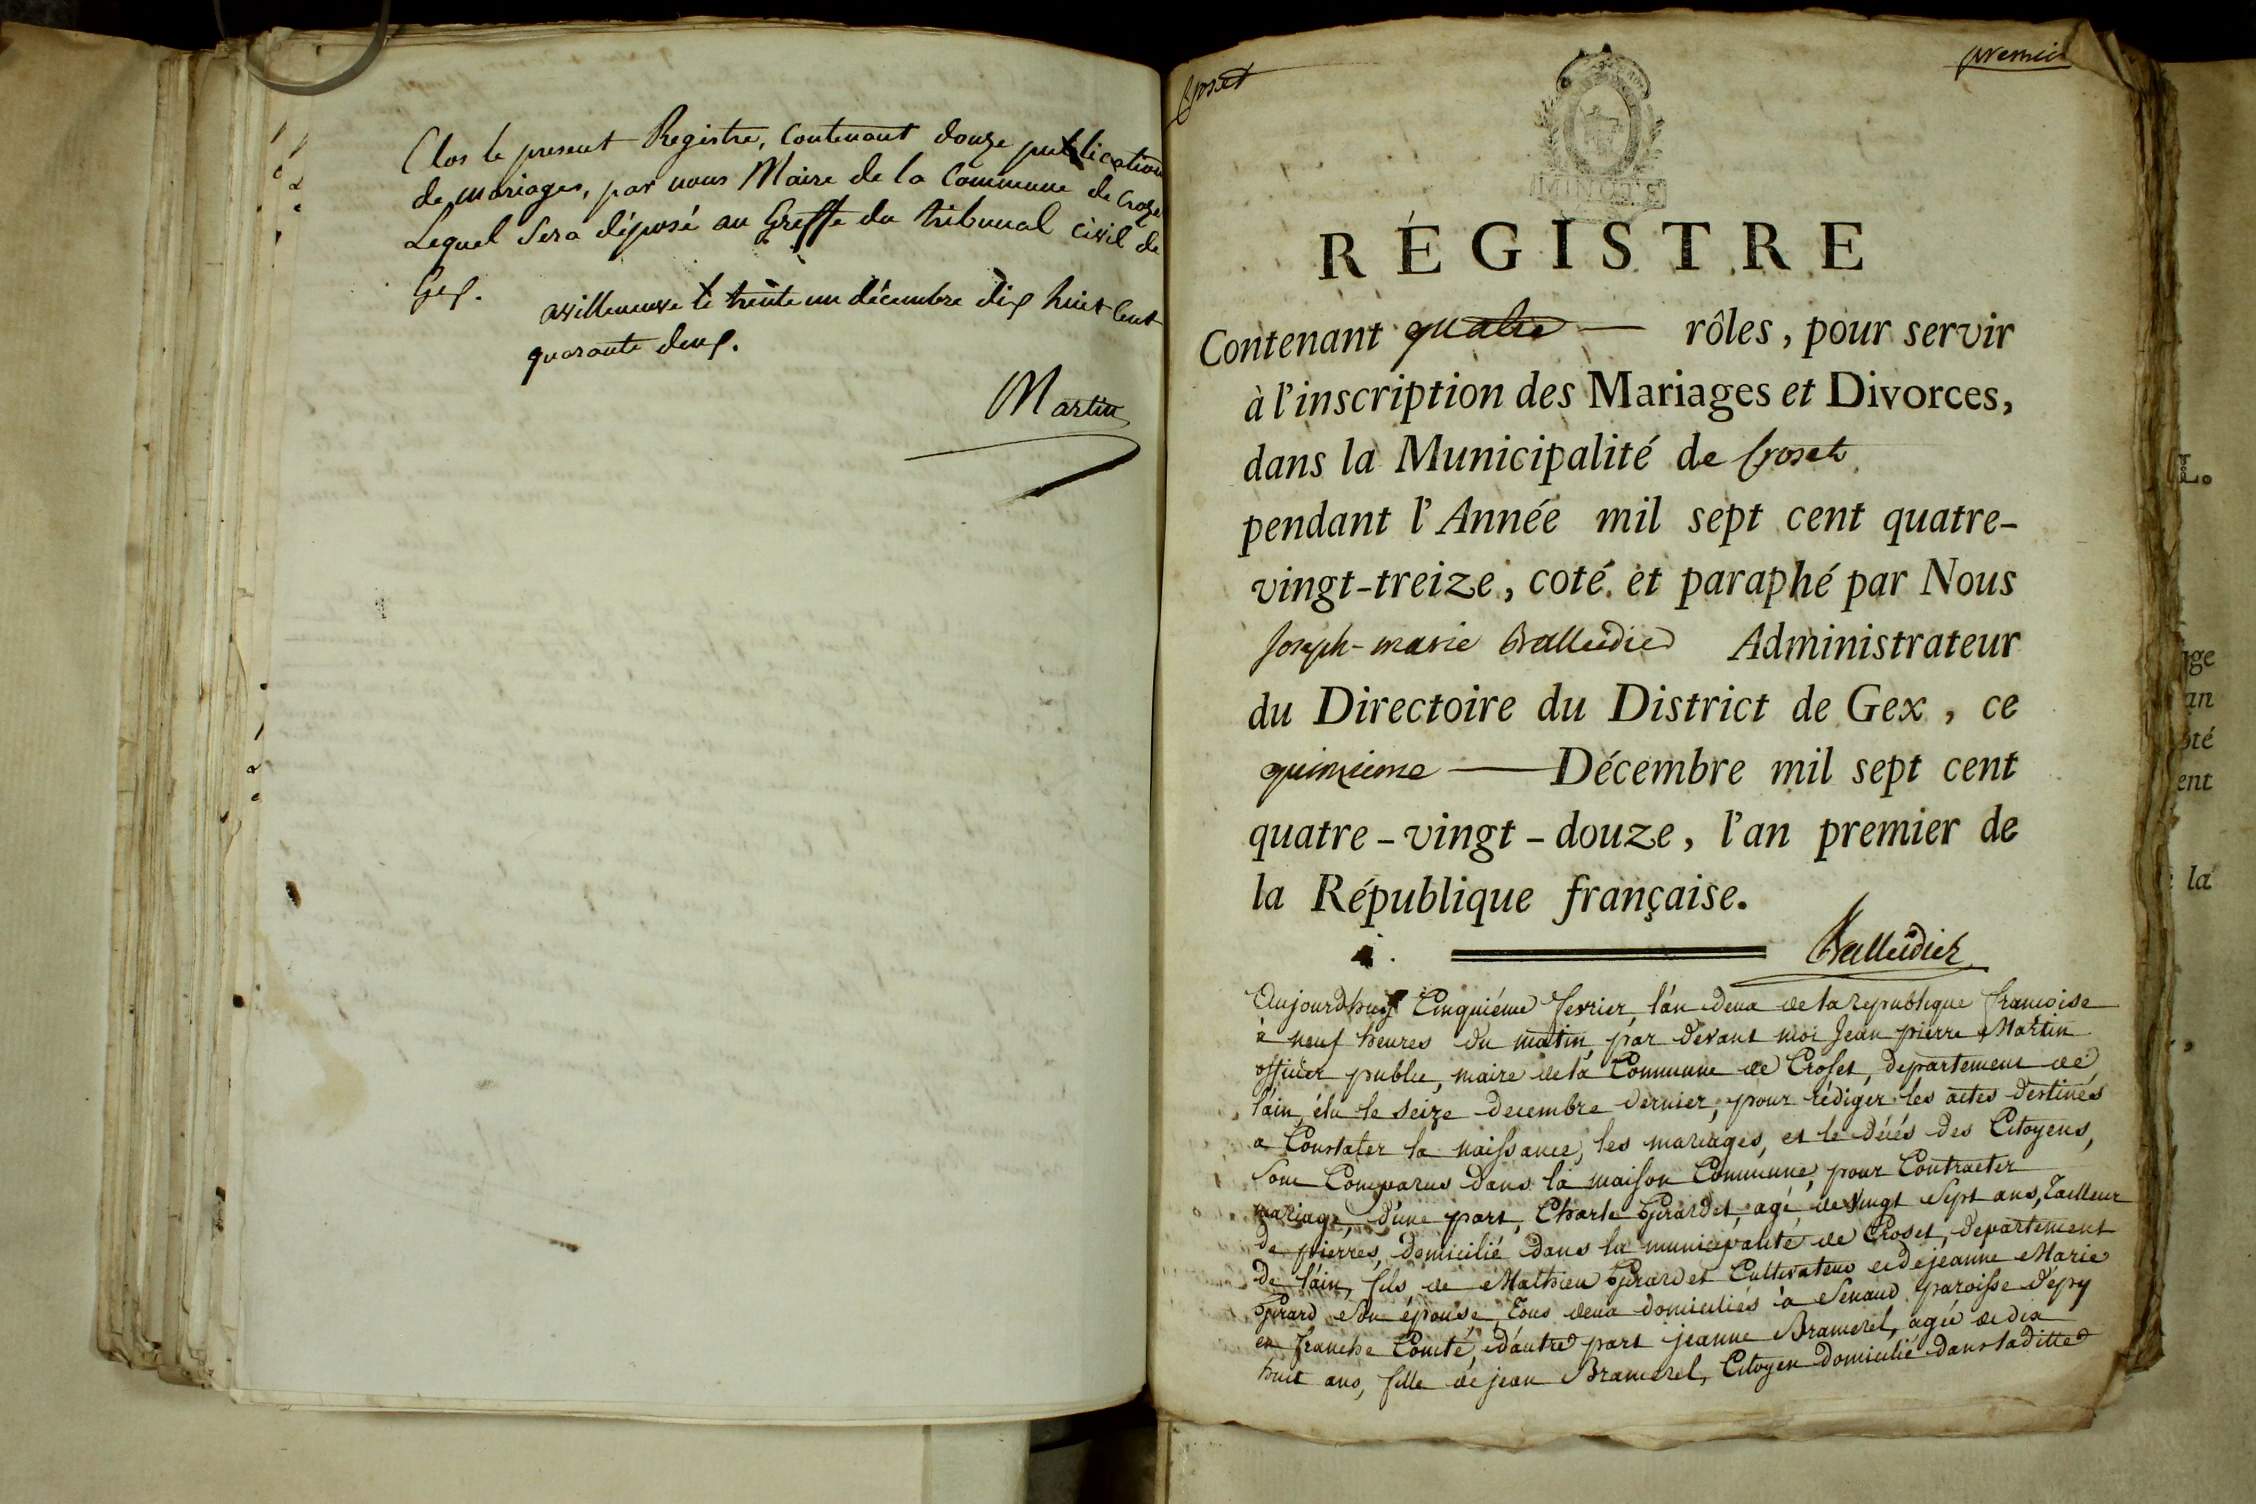 Clos le present Registre, Contenant douze publications
de mariages, par nous Maire de la Commune de Croze
Lequel Sera déposé au Greffe du tribunal civil de
Gex.
avilleneuve le trente un décembre dix huit Cent
quarante deux.
Martin
Croset
premier
MINUTE
RÉGISTRE
Contenant quatre — rôles, pour servir
à l'inscription des Mariages et Divorces,
dans la Municipalité de Croset
pendant l'Année mil sept cent quatre-
vingt-treize, coté et paraphé par Nous
Joseph-marie Balleidier Administrateur
du Directoire du District de Gex, ce
quinzieme — Décembre mil sept cent
quatre-vingt-douze, l'an premier de
la République française.
Balleidier
Aujourdhuy Cinquiéme fevrier, l'an deux de la republique francoise
à neuf heures du matin, par devant moi Jean pierre Martin
officier public, maire de la Commune de Croset, departement de
l'ain, élu le seize decembre dernier, pour rédiger les actes destinés
a Constater la naissance, les mariages, et le décés des Citoyens,
Sont Comparus dans la maison Commune, pour Contracter
mariage, d'une part, Charle Girardet, agé de vingt Sept ans, Tailleur
de pierres, domicilié dans la municipalité de Croset, departement
De l'ain, fils de Mathieu Girardet Cultivateur et de jeanne Marie
Girard son épouse, Tous deux domiciliés à Senaud paroisse d'épy
en franche Comté, d'autre part jeanne Bramerel, agée de dix
huit ans, fille de jean Bramerel, Citoyen domicilié dans laditte